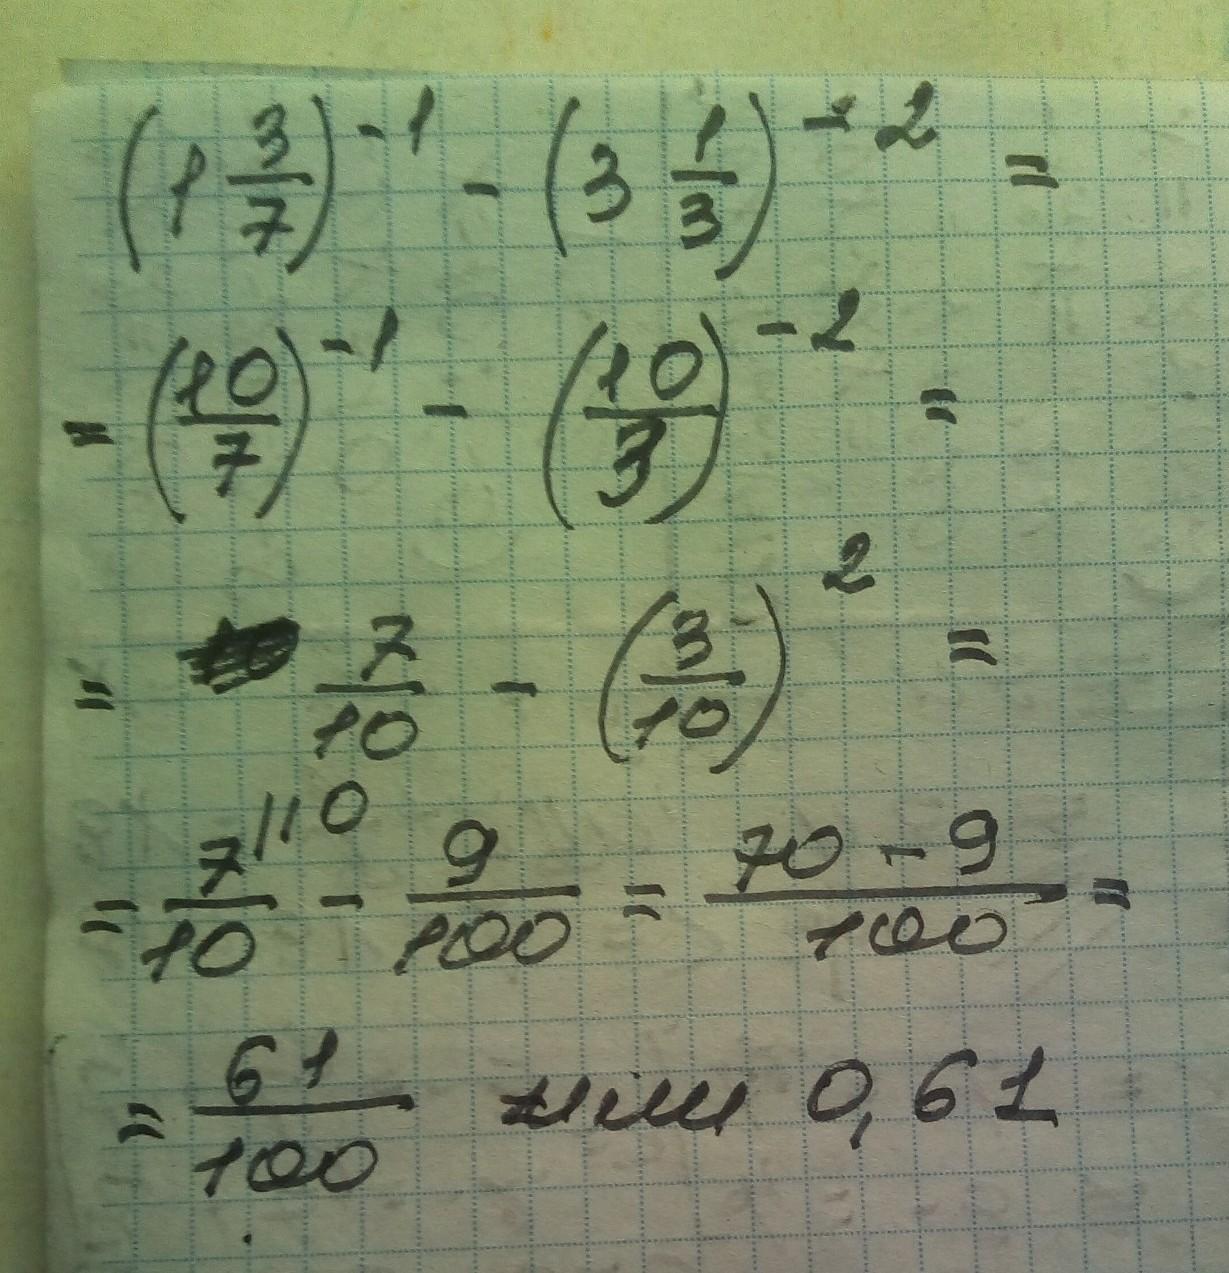 (1 3/7)^-1 - (3 1/3)^-2 =
= (10/7)^-1 - (10/3)^-2 =
= 7/10 - (3/10)^2 =
= 7\10/10 - 9/100 = 70 - 9/100 =
= 61/100 или 0,61